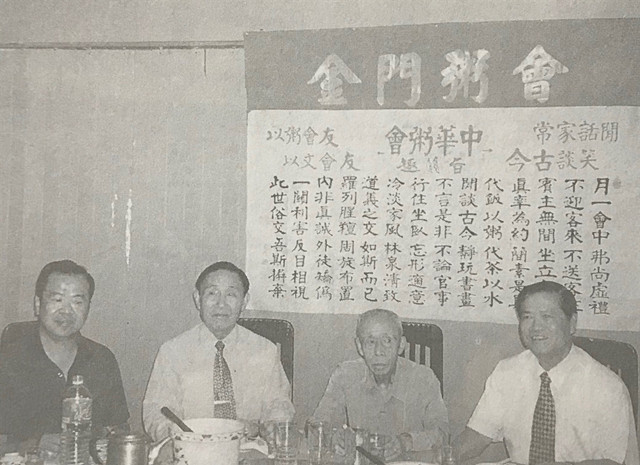 金門粥會
閒話家常
笑談古今
中華粥會
以粥會友
以文會友
月一會中弗尚虛禮
不迎客來不送客
賓主無間坐立
真率為約簡素
代飯以粥代茶以水
閒談古今靜玩書畫
不言是非不論官事
行住坐臥忘形適意
冷淡家風林泉清致
道義之交如斯而已
羅列腥羶周旋布置
內非真誠外徒矯偽
一關利害反目相視
此世俗交吾斯擯棄